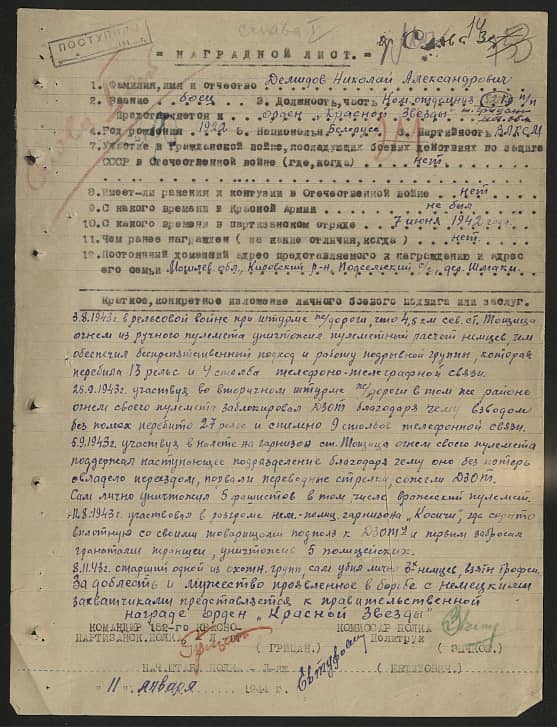 ПОСТУПИЛО
слава I
Слава 3ст
= НАГРАДНОЙ ЛИСТ. =
1. Фамилия, имя и отчество Делидов Николай Александрович
2. Звание боец 3. Должность, часть Ком. отделения 152 п/п
Представляется к орден "Красной Звезды"
4. Год рождения 1922 5. Национальн Белорус 6. Партийность ВЛКСМ
7. Участие в Гражданской войне, последующих боевых действиях по защите
СССР в Отечественной войне (где, когда) нет.
8. Имеет-ли ранения и контузии в Отечественной войне нет
9. С какого времени в Красной Армии не был
10. С какого времени в партизанском отряде 7 июня 1942 года.
11. Чем ранее награжден ( за какие отличия, когда ) нет.
12. Постоянный домашний адрес представляемого к награждению и адрес
его семьи Могилев. обл., Кировский р-н, Подсельский с/с, дер. Шмаки.
Краткое, конкретное изложение личного боевого подвига или заслуг.
3.8.1943г. в рельсовой войне при штурме ж/дороги, что 4,5 км сев. ст. Тощица
огнем из ручного пулемета уничтожил пулеметный расчет немцев чем
обеспечил беспрепятственный подход и работу подрывной группы, которая
перебила 13 рельс и 4 столба телефоно-телеграфной связи.
28.9.1943г. участвуя во вторичном штурме ж/дороги в том же районе
огнем своего пулемета заблокировал ДЗОТ благодаря чему взводом
без помех перебито 27 рельс и спилено 9 столбов телефонной связи.
5.9.1943г. участвуя в налете на гарнизон ст. Тощица огнем своего пулемета
поддержал наступающее подразделение благодаря чему оно без потерь
овладело переездом, порвали переводные стрелки, сожгли ДЗОТ.
Сам лично уничтожил 5 фашистов в том числе вражеский пулемет.
11.8.1943г. участвовал в разгроме нем.-полиц. гарнизона "Косичи", где скрытно
вплотную со своими товарищами подполз к ДЗОТу и первым забросал
гранатами траншеи, уничтожив 5 полицейских.
8.11.43г. старший одной из охотн. групп, сам убил лично 2х немцев, взяты трофеи.
За доблесть и мужество проявленное в борьбе с немецкими
захватчиками представляется к правительственной
награде орден "Красной Звезды"
КОМАНДИР 152-го КРАСНО- КОМИССАР ПОЛКА
ПАРТИЗАНСК. ПОЛКА Политрук
( ГРИЦАН.) ( БЫЧКОВ.)
НАЧ. ШТАБА ПОЛКА Л-нт ( ЕВТУХОВИЧ.)
"11" января 1944 г.